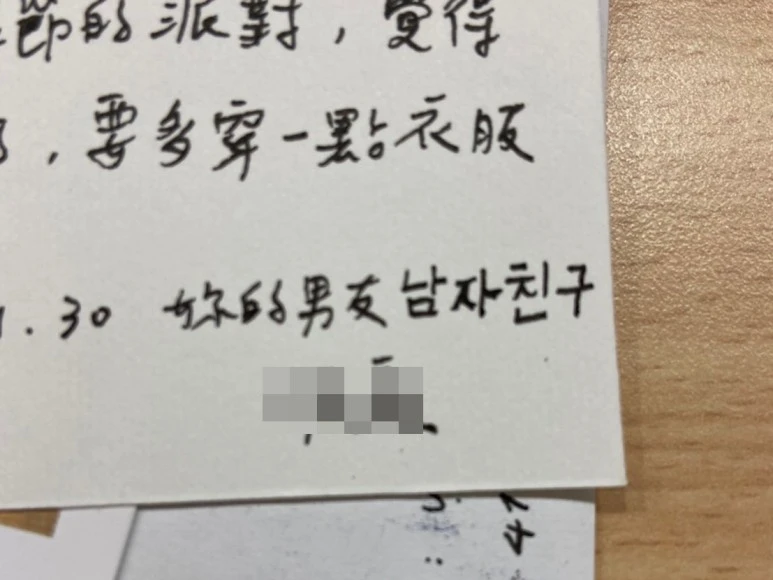 節的派對，覺得
，要多穿一點衣服
.30 妳的男友 남자친구